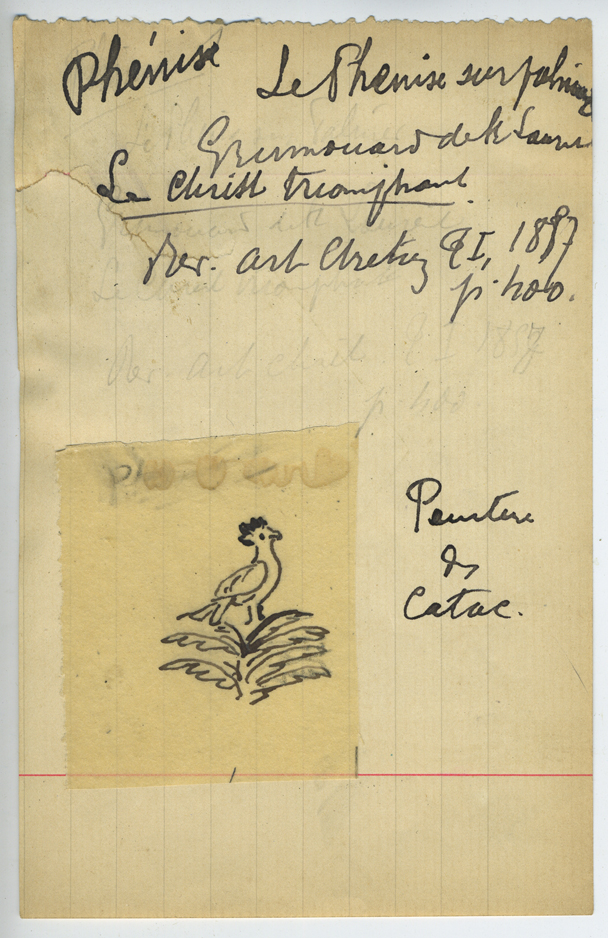 Phénix
Le Phénix sur palmier
Grimouard de St Laurent
Le Christ triomphant.
Rev. art Chrétien 1887
p. 400.
Peinture
des
Catac.